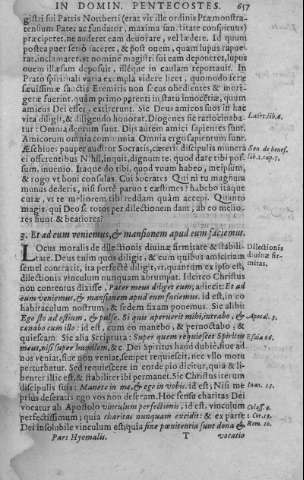 IN DOMIN. PENTECOSTES. 657
gistri sui Patris Norberti (erat vir ille ordinis Præmonstra-
tensium Pater ac fundator, maxima san. titate conspicuus)
præciperet, ne auderet eam devorare, vel lædere. Id quum
postea puer serio jaceret, & post ovem, quam lupus rapue-
rat, inclamaret
Prato spirituali varia exempla videre licet, quomodo feræ
sævissimæ sanctis Eremitis non secus obedientes & mori-
geræ fuerint, quàm primo parenti in statu innocentiæ, quam
amicus Dei esset, exstiterunt. Sic Deus amicos suos in hac
vita diligit, & diligendo honorat. Diogenes sic ratiocinaba-
tur: Omnia deorum sunt. Diis autem amici sapientes sunt.
Amicorum omnia communia. Omnia ergo sapientum sunt.
Æschines pauper auditor Socratis, cæteris discipulis munera
ei offerentibus Nihil, inquit, dignum te, quod dare tibi pos-
sum, invenio. Itaque do tibi, quod unum habeo, meipsum,
& rogo ut boni consulas. Cui Socrates: Quî ni tu magnum
munus dederis, nisi fortè parvo te æstimes? habebo itaque
curæ, ut te meliorem tibi reddam quàm accepi. Quanto
magis, qui Deo se totos per dilectionem dant, ab eo melio-
res fiunt & beatiores?
3. Et ad eum veniemus, & mansionem apud eum faciemus.
Locus moralis de dilectionis divinæ firmitate & stabili-
tate. Deus enim quos diligit, & cum quibus amicitiam
semel contraxit, ita perfectè diligit, ut, quantum ex ipso est,
dilectionis vinculum nunquam abrumpat. Ideirco Christus
non contentus dixisse, Pater meus diliget eum, adjecit: Et ad
eum veniemus, & mansionem apud eum faciemus. id est, in eo
habitaculum nostrum, & sedem fixam ponemus. Sic alibi:
Ego sto ad ostium, & pulso. Si quis aperuerit mihi, intrabo, &
cænabo cum illo: id est, cum eo manebo, & pernoctabo, &
quiescam. Sic alia Scriptura: Super quem requiescet Spiritus
meus, nisi super humilem, &c. Dei Spiritus haud dubiè, sive ad
nos veniat, sive non veniat, semper requiescit, nec ullo motu
perturbatur. Sed requiescere in corde pio dicitur, quia & li-
benter illic est, & stabiliter ibi permanet. Sic Christus iterum
discipulis suis: Manete in me, & ego in vobis. id est; Nisi me
prius deseratis ego vos non deseram. Hoc sensu charitas Dei
vocatur ab Apostolo vinculum perfectionis, id est, vinculum
perfectissimum; quia charitas nunquam excidit: & ex parte
Dei insolubile vinculum est; quia sine pœnitentia sunt dona &
Pars Hyemalis. T vocatio
Laërt. lib. 6.
Sen. de benef.
lib. 1. cap. 8.
Dilectionis
divinæ fir-
mitas.
Apocal. 3.
Esaiæ 66.
Ioan. 15.
Coloss. 3.
1. Cor. 13.
Rom. 11.